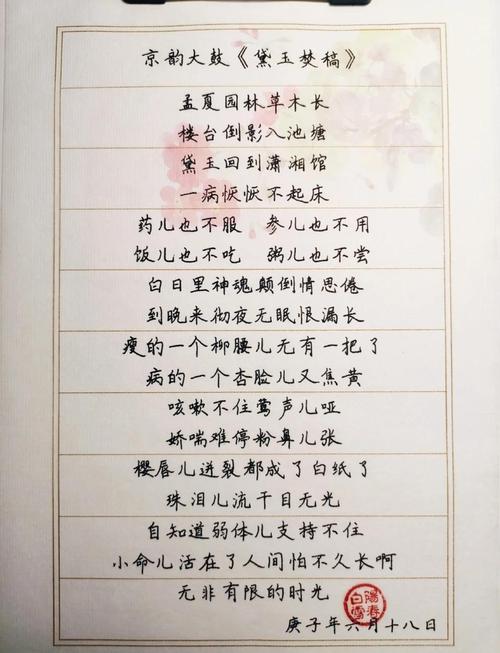 京韵大鼓《黛玉焚稿》
孟夏园林草木长
楼台倒影入池塘
黛玉回到潇湘馆
一病恹恹不起床
药儿也不服　参儿也不用
饭儿也不吃　粥儿也不尝
白日里神魂颠倒情思倦
到晚来彻夜无眠恨漏长
瘦的一个柳腰儿无有一把了
病的一个杏脸儿又焦黄
咳嗽不住莺声儿哑
娇喘难停粉鼻儿张
樱唇儿迸裂都成了白纸了
珠泪儿流干目无光
自知道弱体儿支持不住
小命儿活在了人间怕不久长啊
无非有限的时光
陽春白雪
庚子年六月十八日